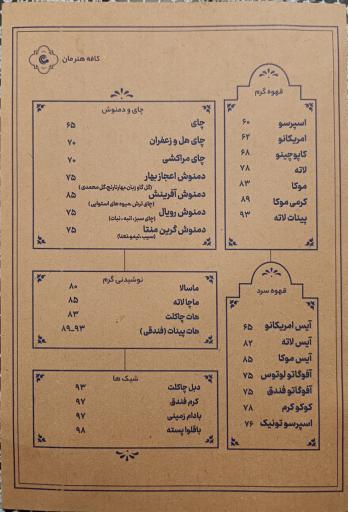 کافه هنرمان
قهوه گرم
اسپرسو ۶۰
امریکانو ۶۲
کاپوچینو ۶۸
لاته ۷۸
موکا ۸۳
کرمی موکا ۸۹
پینات لاته ۹۳
قهوه سرد
آیس امریکانو ۶۵
آیس لاته ۸۲
آیس موکا ۸۵
آفوگاتو لوتوس ۷۵
آفوگاتو فندق ۷۵
کوکو کرم ۷۸
اسپرسو تونیک ۷۶
چای و دمنوش
چای ۶۵
چای هل و زعفران ۷۰
چای مراکشی ۷۰
دمنوش اعجاز بهار ۷۵
(گل گاو زبان، بهارنارنج، گل محمدی)
دمنوش آفرینش ۸۵
(چای ترش، میوه های استوایی)
دمنوش رویال ۷۵
(چای سبز، انبه، نبات)
دمنوش گرین منتا ۷۵
(سیب، لیمو، نعنا)
نوشیدنی گرم
ماسالا ۸۰
ماچا لاته ۸۵
هات چاکلت ۸۳
هات پینات (فندقی) ۸۹_۹۳
شیک ها
دبل چاکلت ۹۳
کرم فندق ۹۷
بادام زمینی ۹۷
باقلوا پسته ۹۸